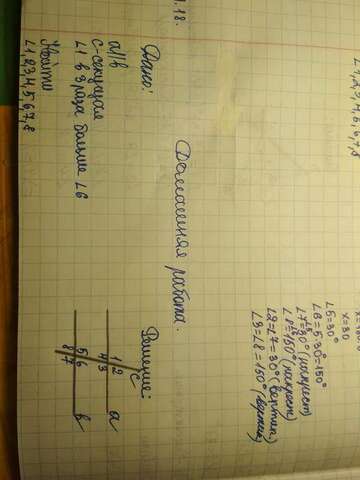 .18.
∠1,2,3,4,5,6,7,8
x=30
∠5=30°
∠6=5·30=150°
∠7=30° (накрест)
∠8=150° (накрест)
∠2=∠7=30° (вертик.)
∠3=∠8=150° (вертик)
Домашняя работа.
Дано:
a||b
c-секущая
∠1 в 3 раза больше ∠6
Найти
∠1,2,3,4,5,6,7,8
Решение:
c
1 2
4 3
a
5 6
8 7
b